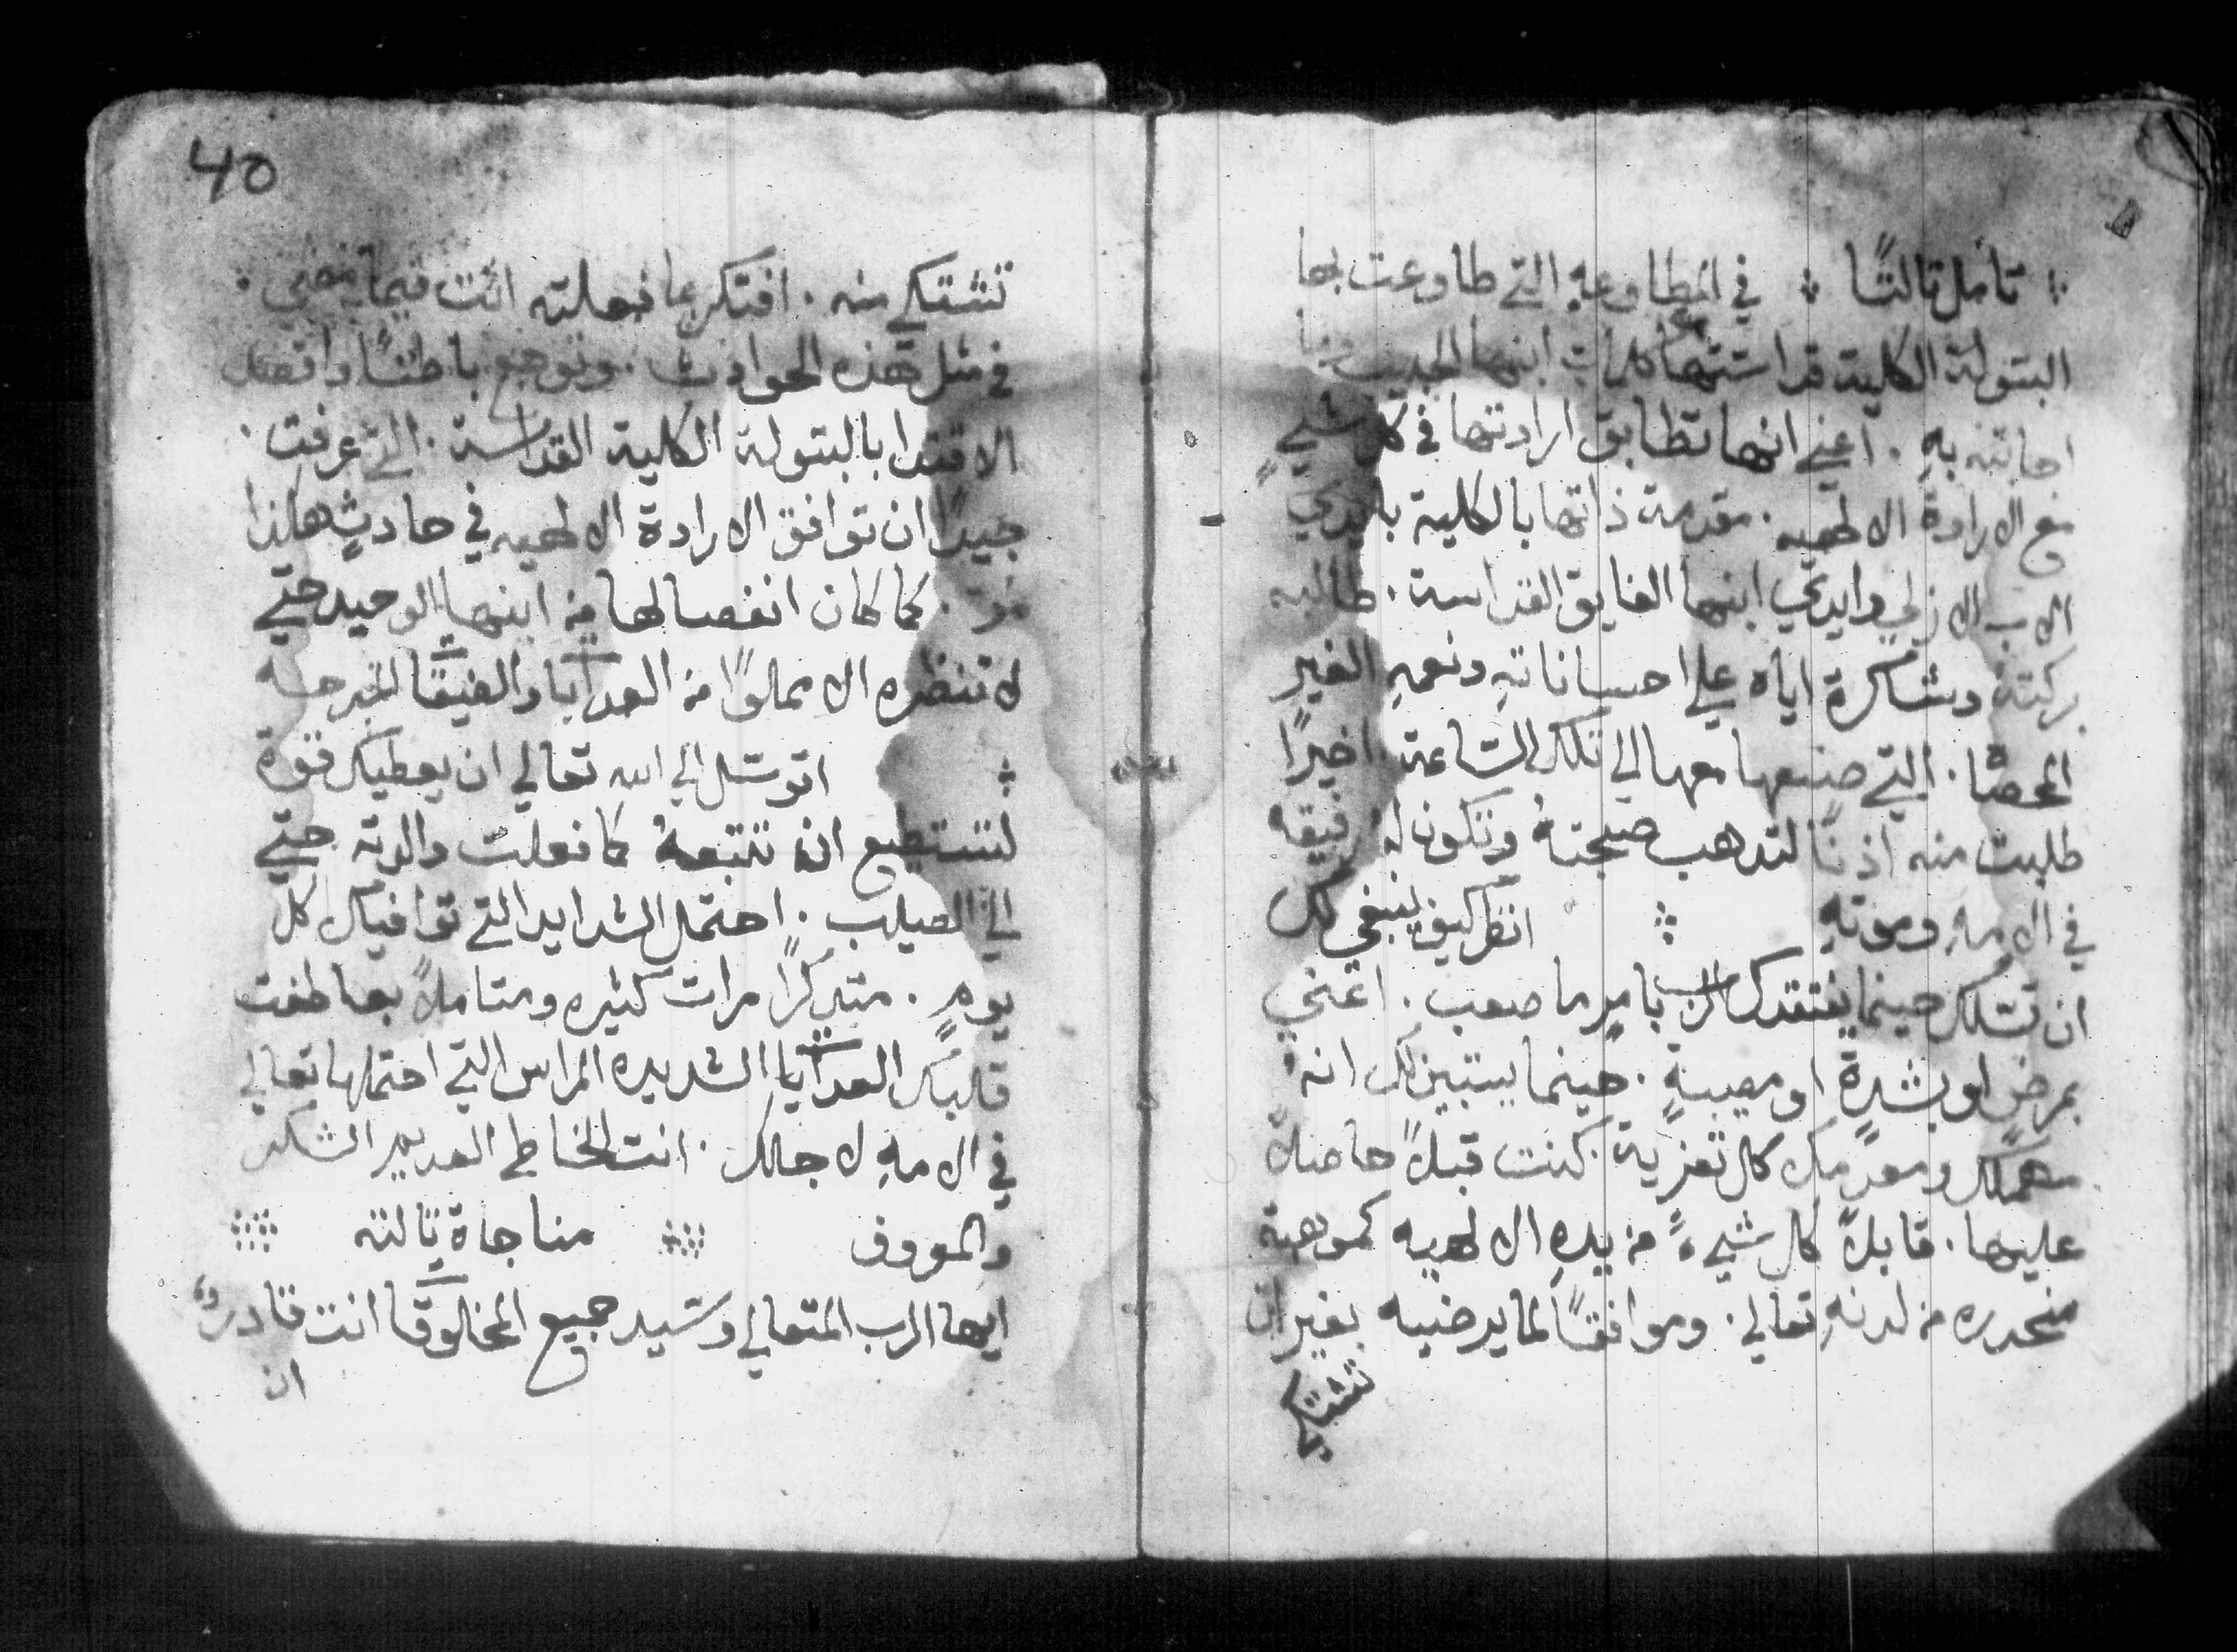 تامل تالتًا في المطاوعهِ التي طاوعت بها
البتولة الكلية قداستها كلمات ابنها الحبيب
اجابته بهِ . اعني انها تطابق ارادتها في كل شيءٍ
مع الارادة الالهيه . مقدمة ذاتها بالكلية بايدي
الاب الازلي وايدي ابنها الفايق القداسة . طالبه
بركتهُ وشاكرة اياه علي احساناتهِ ونعمهِ الغير
المحصاه . التي صنعها معها الي تلك الساعة اخيرًا
طلبت منه اذنًا لتدهب صحبتهُ وتكون لهُ رفيقه
في الامهِ وموتهِ انظر كيف ينبغي لك
ان تسلك حينما يفتقدك الرب بامرٍ ما صعب . اعني
بمرضٍ او بشدةٍ او مصيبةٍ . حينما يستبين لك انه
مهملك ومعدمك كل تعزية كنت قبلاً حاصلاً
عليها . قابلاً كل شيءً من يدهِ الالهيه كموهبة
منحدره من لدنهِ تعالي . وموافقًا لما يرضيه بغير ان
تشتكي
40
تشتكي منه . افتكر بما فعلته انت فيما مضي .
في مثل هذه الحوادث . وتوجع باطنًا واقصد
الاقتدا بالبتولة الكلية القداسة . التي عرفت
جيدًا ان توافق الارادة الالهيه في حادثٍ هكذا
مُر . كما كان انفصالها من ابنها الوحيد حتي
لا تنظره الا مملوًا من العدابات والضيقات المبرحه
اتوسل الي الله تعالي ان يعطيك قوة
لتستطيع ان تتبعهُ كما فعلت والدته حتي
الي الصليب . احتمل الشدايد التي توافيك كل
يومٍ . متدكرًا مرات كثيره ومتاملاً بعاطفت
قلبك العدابات الشديده المراس التي احتملها تعالي
في الامهِ لاجلك . انت الخاطي العديم الشكر
والمعروف مناجاة تالته
ايها الرب المتعالي وسيد جميع المخلوقات انت قادر
ان